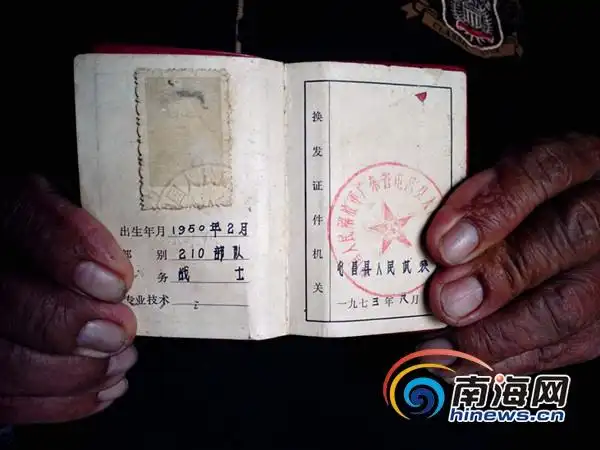 出生年月 1950年2月
部 别 210部队
务 战 士
专业技术
换发证件机关
昌县人民武装
一九七三年八月
南海网
hinews.cn